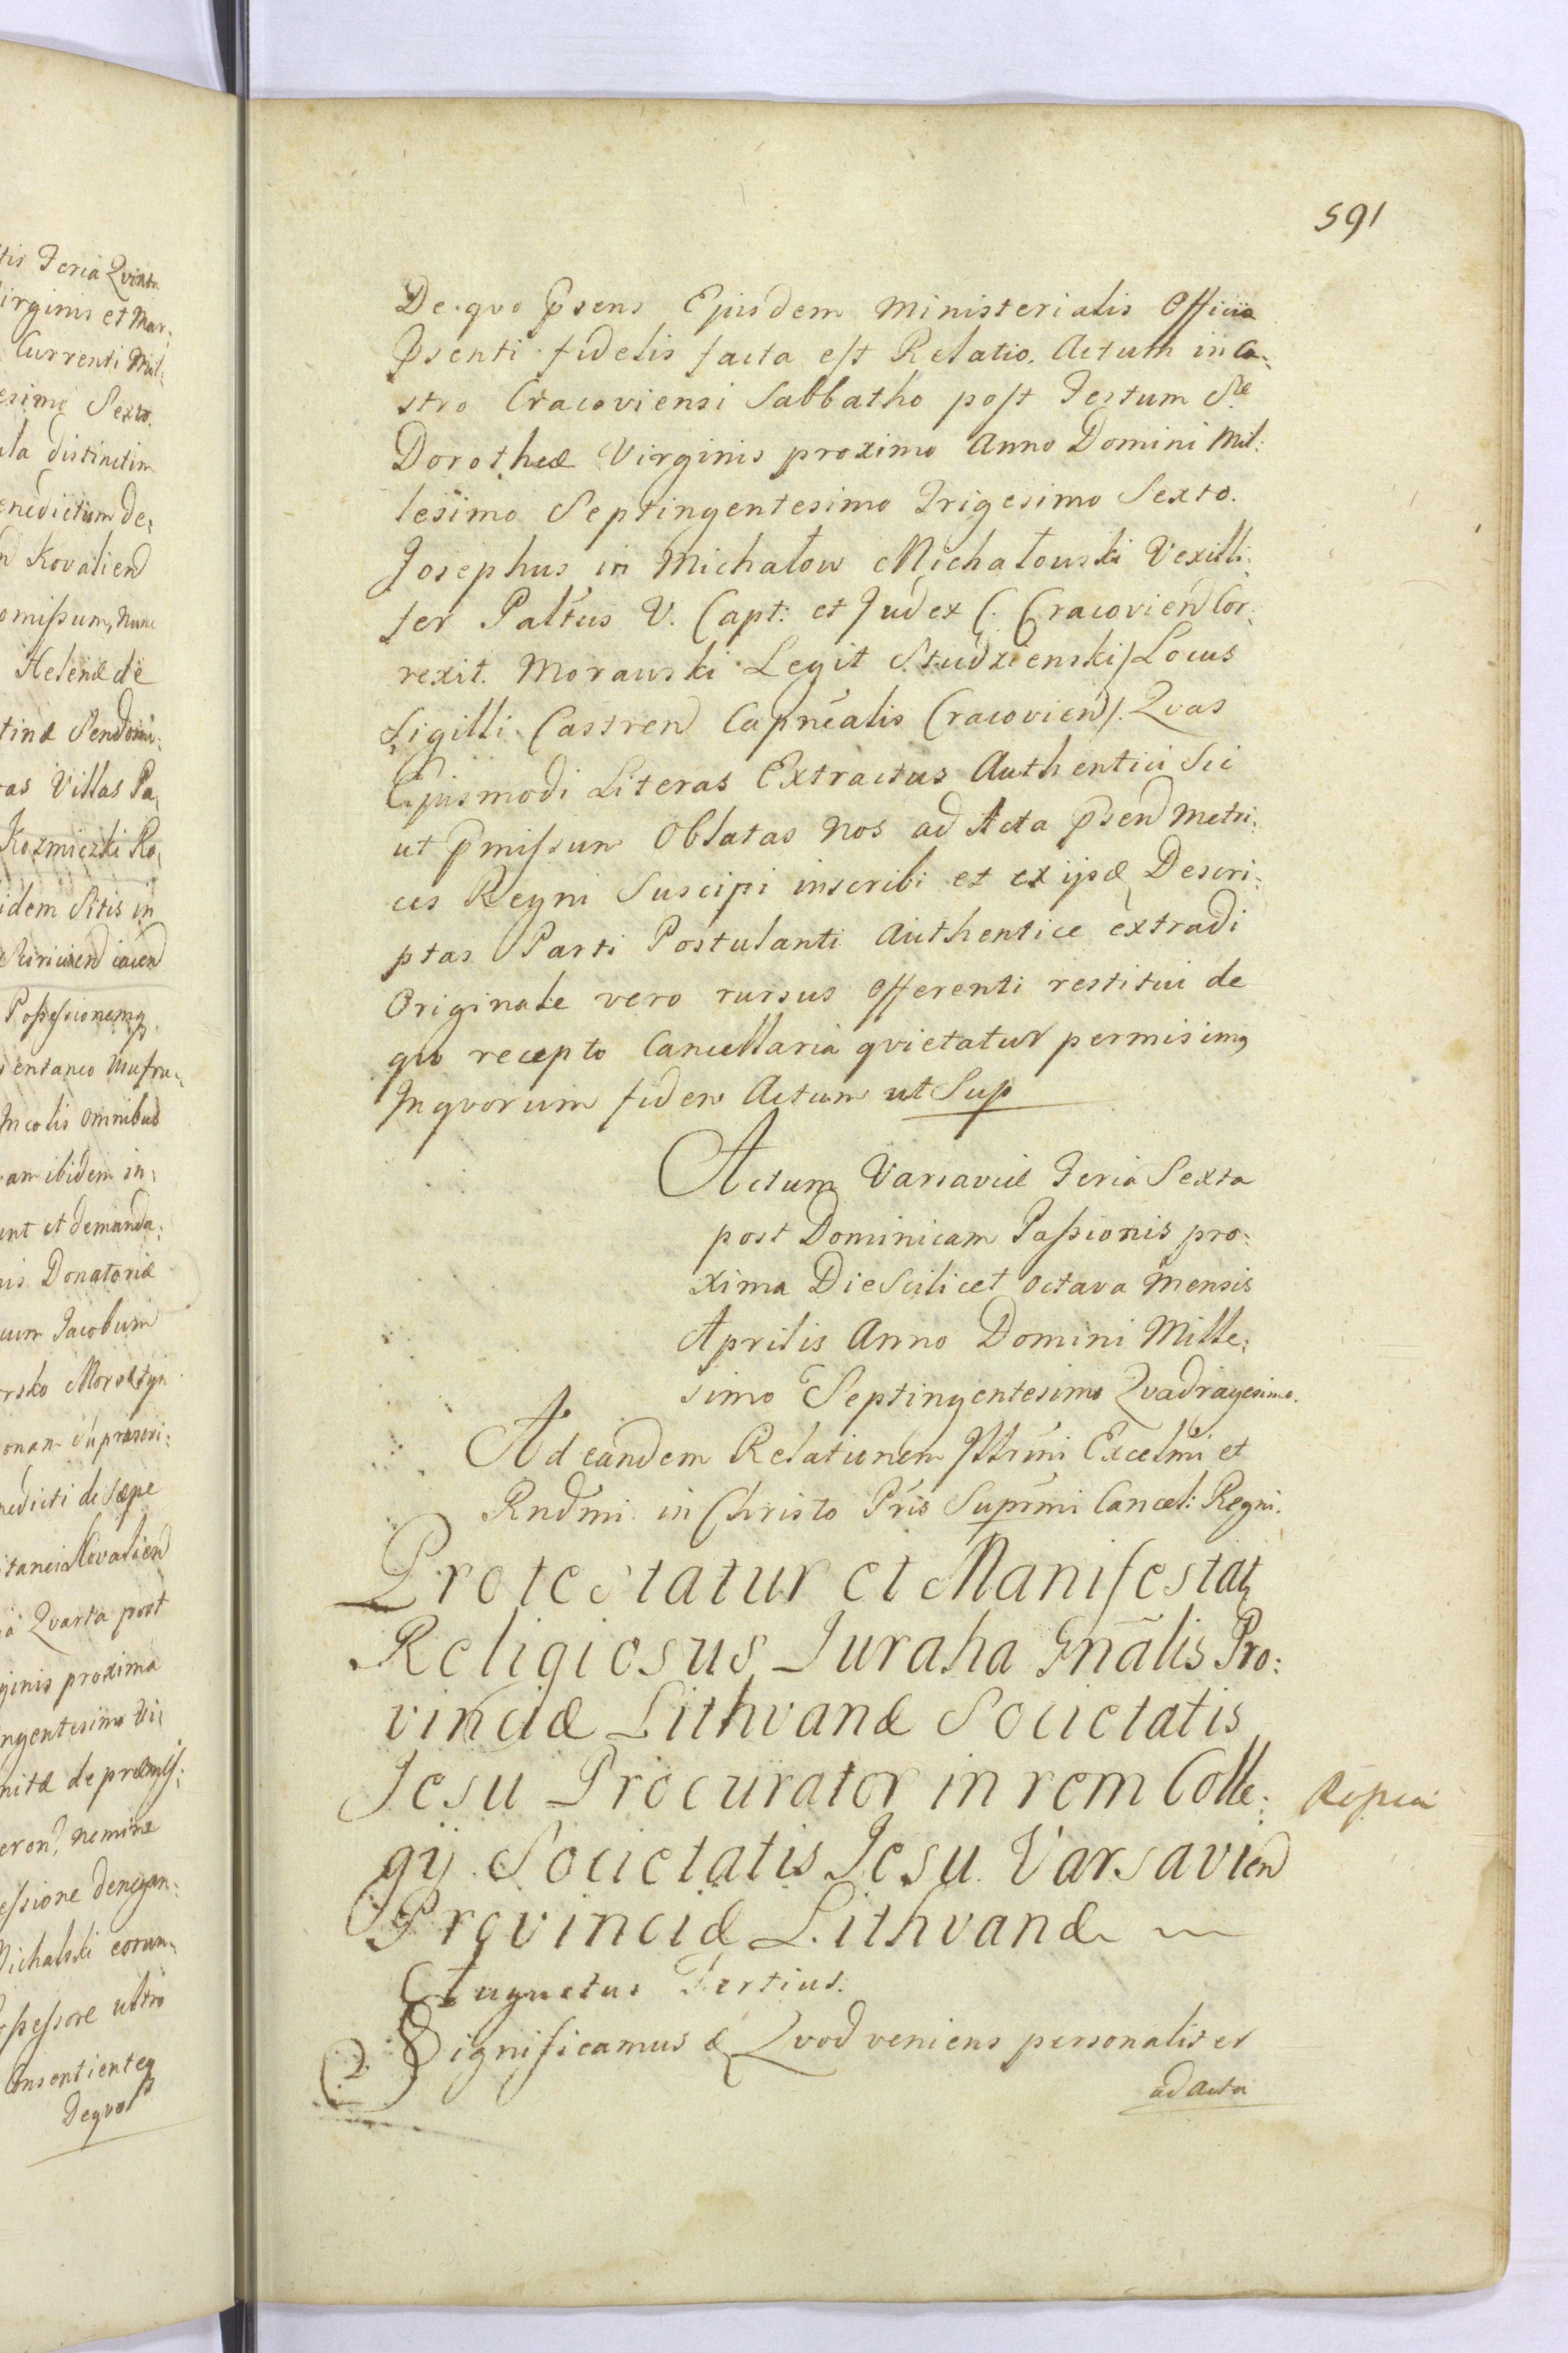 tis Feria Qvinta
irginis et Mar:
Currenti Mil:
esimo Sexto.
ula distinctim
enedictum de:
Kovalien
omissum, nunc
Helenæ de
tinæ Sendomi:
as Villas Pa:
Kozmiczki Ro:
idem Sitis in
iacen
Possessionemq
entaneo Usufru:
Incolis omnibus
am ibidem in:
unt et demanda:
is Donatoriæ
um Jacobum
rsko Morsktyn
onam Suprascri:
nedicti de Sæpe
tanei Kovalien
a Qvarta post
ginis proxima
ngentesimo Vi:
nitæ de præmiss:
eren, nemine
essione denegan:
Michalski eorum:
ossessore ultro
Consentienteq
Deqvo
591
De qvo pͤsens Ejusdem Ministerialis Officio
pͤsenti fidelis facta est Relatio. Actum in Ca:
stro Cracoviensi Sabbatho post Festum Stæ
Dorotheæ Virginis proximo Anno Domini Mil:
lesimo Septingentesimo Trigesimo Sexto.
Josephus in Michałow Michałowski Vexilli:
fer Paltus V. Capt: et Judex C. Cracovien Cor:
rexit. Morawski Legit Studzienski /. Locus
Sigilli Castren Capnealis Cracovien /. Qvas
Ejusmodi Literas Extractus Authentici Sic
ut pͤmissum Oblatas Nos ad Acta pͤsen Metri:
ces Regni Suscipi inscribi et ex ijsd Descri:
ptas Parti Postulanti Authentice extradi
Originale vero rursus Offerenti restitui de
qvo recepto Cancellaria qvietatur permisimq
In qvorum fidem Actum ut Sup
Actum Varsaviæ Feria Sexta
post Dominicam Passionis pro:
xima Die Scilicet Octava Mensis
Aprilis Anno Domini Mille:
simo Septingentesimo Qvadragesimo.
Ad eandem Relationem Illrmi Excelmi et
Rndmi in Christo Pris Suprmi Cancel: Regni.
Protestatur et Manifestat
Religiosus Juraha Gnalis Pro:
vinciæ Lithvanæ Societatis
Jesu Procurator in rem Colle:
gij Societatis Jesu Varsavien
Provinciæ Lithvanæ
Augustus Tertius.
Significamus & Qvod veniens personaliter
ad Acta